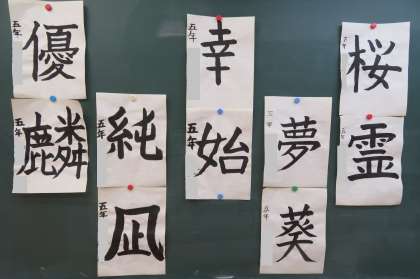 五年
優
五年
麟
五年
純
五年
凪
五年
幸
五年
始
五年
夢
五年
葵
五年
桜
五年
霊